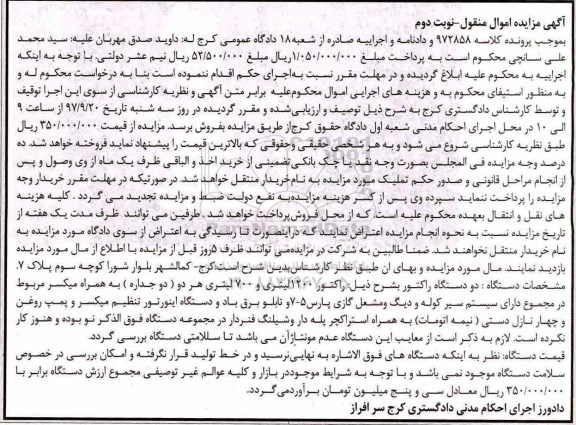 آگهی مزایده اموال منقول-نوبت دوم
بموجب پرونده کلاسه ۹۷۲۸۵۸ و دادنامه و اجراییه صادره از شعبه۱۸ دادگاه عمومی کرج له: داوید صدق مهربان علیه: سید محمد
علی سانچی محکوم است به پرداخت مبلغ ۱/۰۵۰/۰۰۰/۰۰۰ریال مبلغ ۵۲/۵۰۰/۰۰۰ ریال نیم عشر دولتی. با توجه به اینکه
اجراییه به محکوم علیه ابلاغ گردیده و در مهلت مقرر نسبت به اجرای حکم اقدام ننموده است بنا به درخواست محکوم له و
به منظور استیفای محکوم به و هزینه های اجرایی اموال محکوم علیه برابر متن آگهی و نظریه کارشناسی از سوی این اجرا توقیف
و توسط کارشناس دادگستری کرج به شرح ذیل توصیف و ارزیابی شده و مقرر گردیده در روز سه شنبه تاریخ ۹۷/۹/۲۰ از ساعت ۹
الی ۱۰ در محل اجرای احکام مدنی شعبه اول دادگاه حقوق کرج از طریق مزایده بفروش برسد. مزایده از قیمت ۳۵۰/۰۰۰/۰۰۰ ریال
طبق نظریه کارشناسی شروع می شود و به هر شخصی حقیقی وحقوقی که بالاترین قیمت را پیشنهاد نماید فروخته خواهد شد. ده
درصد وجه مزایده فی المجلس بصورت وجه نقد یا چک بانکی تضمینی از خرید اخذ و الباقی ظرف یک ماه از وی وصول و پس
از انجام مراحل قانونی و صدور حکم تملیک مورد مزایده به نام خریدار منتقل خواهد شد. در صورتیکه در مهلت مقرر خریدار وجه
مزایده را پرداخت ننماید سپرده وی پس از کسر هزینه مزایده به نفع دولت ضبط و مزایده تجدید می گردد . کلیه هزینه
های نقل و انتقال بعهده محکوم علیه است. که از محل فروش پرداخت خواهد شد. طرفین می توانند ظرف مدت یک هفته از
تاریخ مزایده نسبت به نحوه انجام مزایده اعتراض نمایند که دراینصورت تا رسیدگی به اعتراض از سوی دادگاه مورد مزایده به
نام خریدار منتقل نخواهد شد. ضمنا طالبین به شرکت در مزایده می توانند ظرف ۵روز قبل از مزایده با اطلاع از مال مورد مزایده
بازدید نمایند. مال مورد مزایده و بهای ان طبق نظر کارشناس بدین شرح است: کرج- کمالشهر بلوار شورا کوچه سوم پلاک ۷.
مشخصات دستگاه : دو دستگاه راکتور بشرح ذیل: راکتور ۱۲۰۰لیتری و ۷۰۰ لیتری هر دو ( دو جداره ) به همراه میکسر مربوط
در مجموع دارای سیستم سیر کوله و دیگ ومشعل گازی پارس۵-۷و تابلو برق باد و دستگاه اینورتور تنظیم میکسر و پمپ روغن
و چهار نازل دستی ( نیمه اتومات) به همراه استراکچر پله دار وشیلنگ فنردار در مجموعه دستگاه فوق الذکر نو بوده و هنوز کار
نکرده است. لازم به ذکر است از معایب این دستگاه عدم مونتاژآن می باشد تا سلامتی دستگاه بررسی گردد.
قیمت دستگاه: نظر به اینکه دستگاه های فوق الاشاره به نهایی نرسید و در خط تولید قرار نگرفته و امکان بررسی در خصوص
سلامت دستگاه موجود نمی باشد و با توجه به شرایط موجوددر بازار و کلیه عوالم غیر توصیفی مجموع ارزش دستگاه برابر با
۳۵۰/۰۰۰/۰۰۰ ریال معادل سی و پنج میلیون تومان برآوردمی گردد.
دادورز اجرای احکام مدنی دادگستری کرج سر افراز